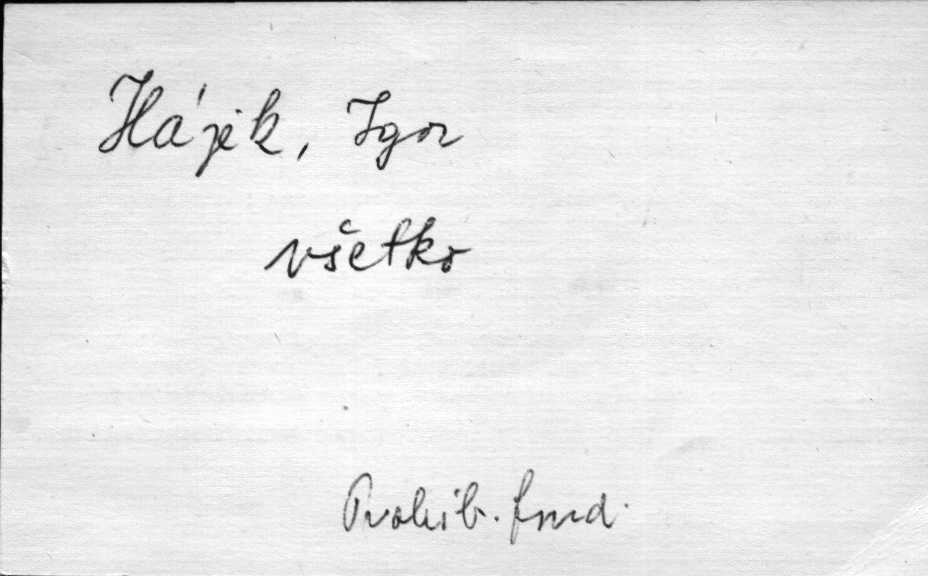 Hájek, Igor
všetko
Prohib. fond.